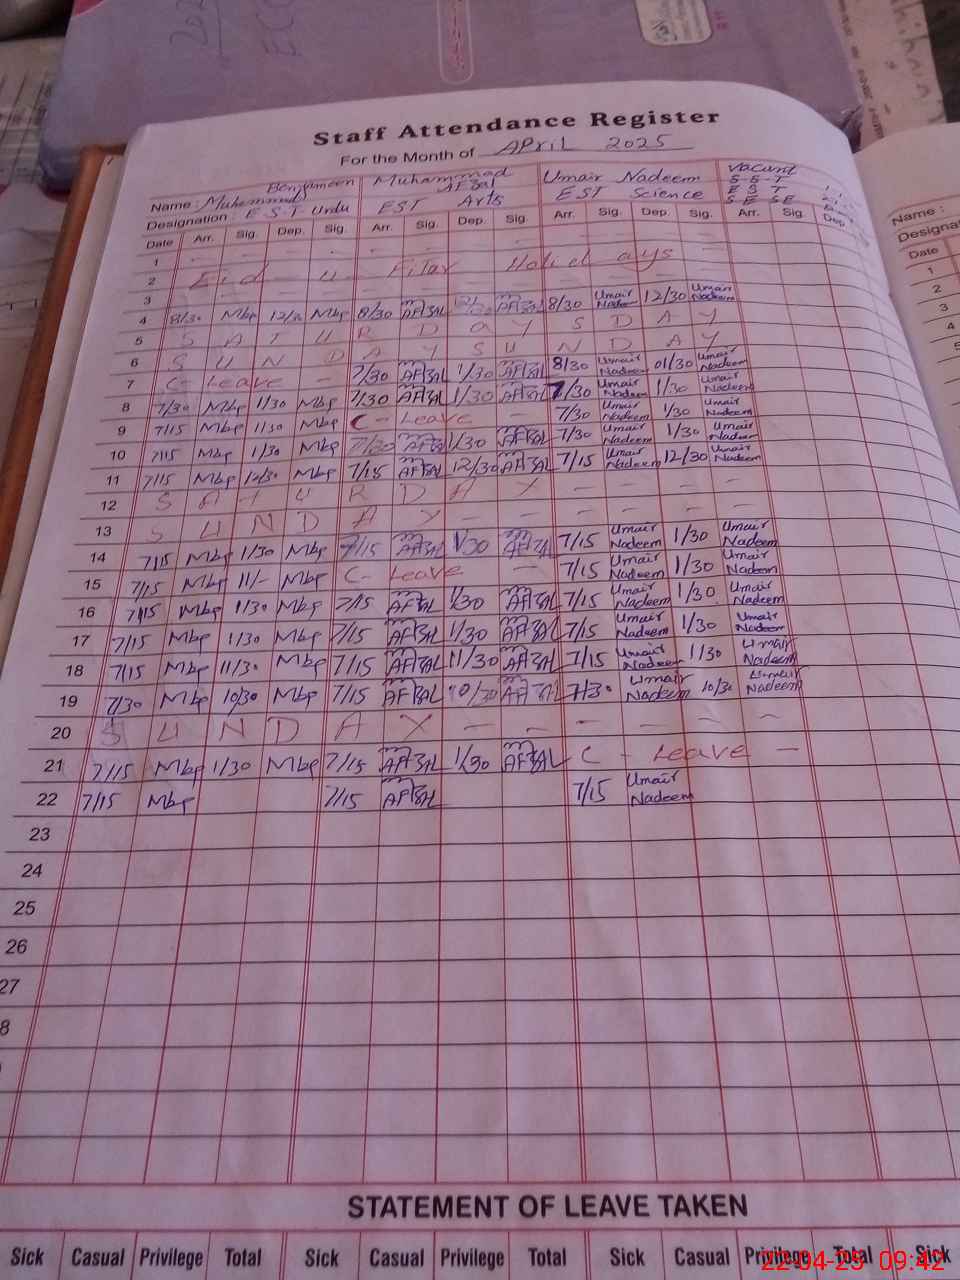 Staff Attendance Register
For the Month of APriL 2025
Name: Muhammad Benyameen Muhammad AFzal Umair Nadeem Vacant
Designation: E.S.T Urdu EST Arts EST Science S S T
E S T
S E S E
Date Arr. Sig. Dep. Sig. Arr. Sig. Dep. Sig. Arr. Sig. Dep. Sig. Arr. Sig. Dep.
1
2 Eid u Fitar Holidays
3
4 8/30 Mbp Mbp 8/30 AFZAL AFZAL 8/30 Umair Nadeem 12/30 Umair Nadeem
5 S A T U R D a Y S D A Y
6 S U N D A Y S U N D A Y
7 C- Leave - 7/30 AFZAL 1/30 AFZAL 8/30 Umair Nadeem 01/30 Umair Nadeem
8 7/30 Mbp 1/30 Mbp 7/30 AFZAL 1/30 AFZAL 7/30 Umair Nadeem 1/30 Umair Nadeem
9 7/15 Mbp 1/30 Mbp C- Leave - 7/30 Umair Nadeem 1/30 Umair Nadeem
10 7/15 Mbp 1/30 Mbp 7/30 AFZAL 1/30 AFZAL 7/30 Umair Nadeem 1/30 Umair Nadeem
11 7/15 Mbp 12/30 Mbp 7/15 AFZAL 12/30 AFZAL 7/15 Umair Nadeem 12/30 Umair Nadeem
12 S A T U R D A Y - - - - -
13 S U N D A Y - - - - - - -
14 7/15 Mbp 1/30 Mbp 7/15 AFZAL 1/30 AFZAL 7/15 Umair Nadeem 1/30 Umair Nadeem
15 7/15 Mbp 11/- Mbp C- Leave - 7/15 Umair Nadeem 1/30 Umair Nadeem
16 7/15 Mbp 1/30 Mbp 7/15 AFZAL 1/30 AFZAL 7/15 Umair Nadeem 1/30 Umair Nadeem
17 7/15 Mbp 1/30 Mbp 7/15 AFZAL 1/30 AFZAL 7/15 Umair Nadeem 1/30 Umair Nadeem
18 7/15 Mbp 11/30 Mbp 7/15 AFZAL 11/30 AFZAL 7/15 Umair Nadeem 1130 Umair Nadeem
19 7/30 Mbp 10/30 Mbp 7/15 AFZAL 10/30 AFZAL 7/30 Umair Nadeem 10/30 Umair Nadeem
20 S U N D A Y - - - - - -
21 7/15 Mbp 1/30 Mbp 7/15 AFZAL 1/30 AFZAL C - Leave -
22 7/15 Mbp 7/15 AFZAL 7/15 Umair Nadeem
23
24
25
26
27
8
STATEMENT OF LEAVE TAKEN
Sick Casual Privilege Total Sick Casual Privilege Total Sick Casual Privilege Total Sick
22-04-25 09:42
Name :
Designat
Date
1
2
3
4
5